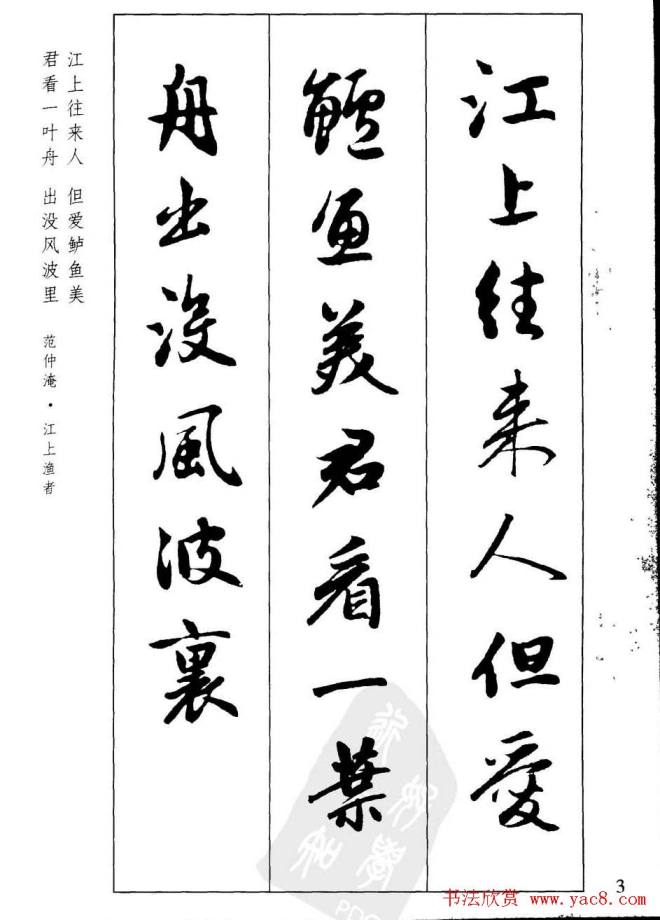 江上往来人但愛
鱸魚美君看一葉
舟出没風波裏
江上往来人 但爱鲈鱼美
君看一叶舟 出没风波里
范仲淹·江上渔者
3
书法欣赏 www.yac8.com